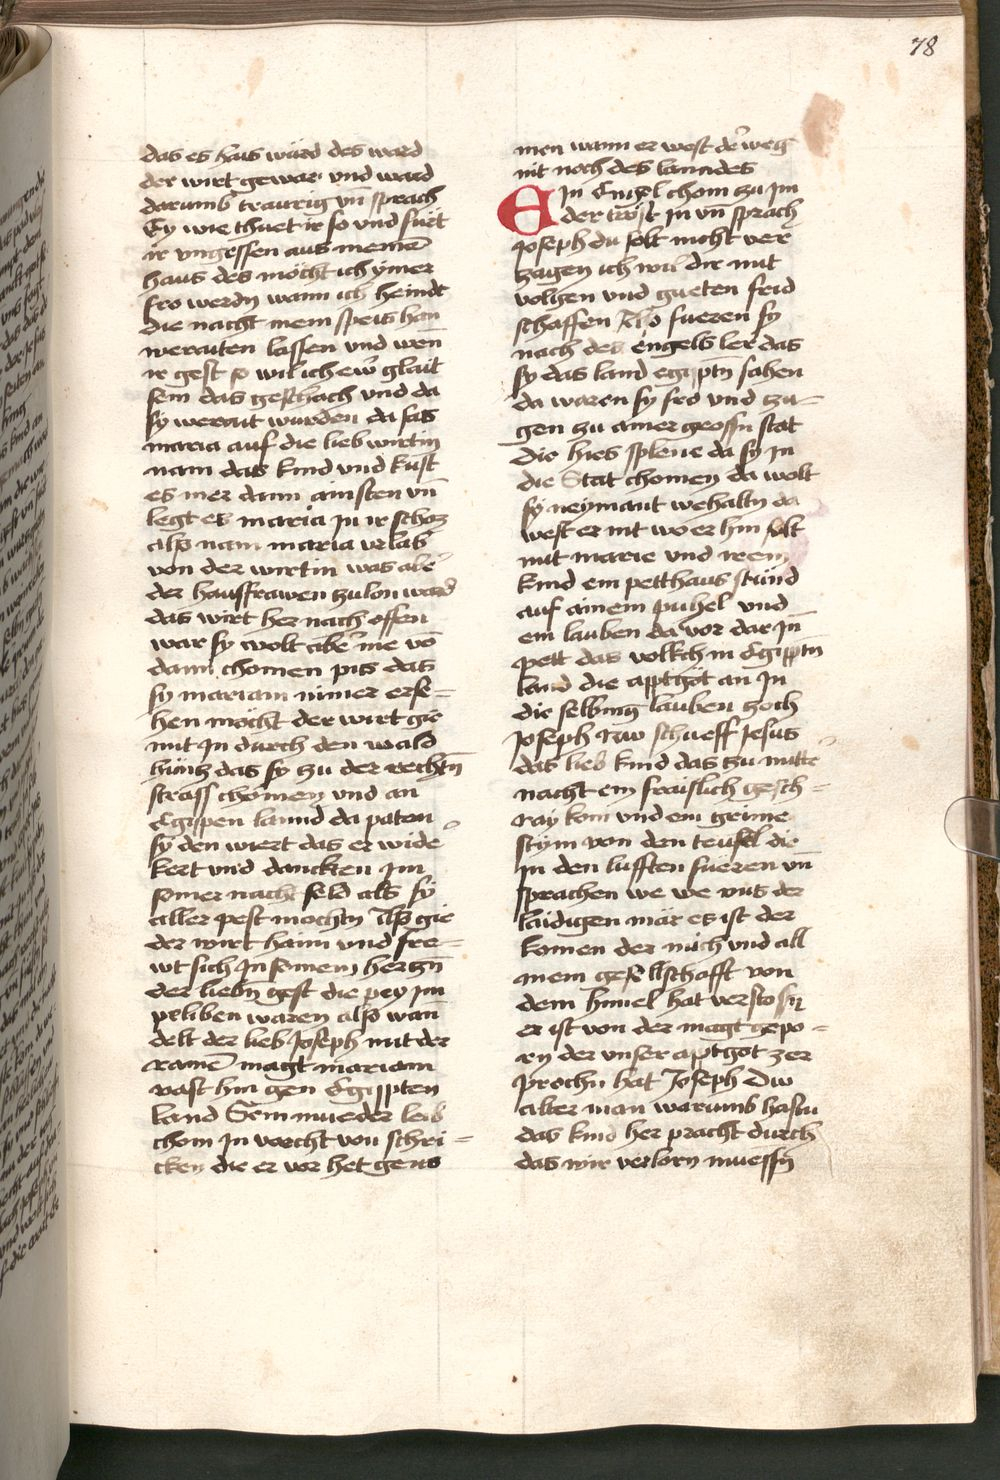 78
das es haus wurd des ward
der wirt gewar und ward
darumb traurig vn̄ sprach
Ey wie thuet ir so und furt
ir vngessen aus meinē
haus des möcht ich ymer
fro werdn wann ich heindt
die nacht mein speis han
weraiten lassen und wen̄
ir gest so wil ich ew̄ glait
sein das geschach und da
sy werait wurden da sas
maria auf die lieb wirtin
nam das kind und kust
es mer dann ainsten vn̄
legt es maria in ir schos
also nam maria vrlab
von der wirtin was abe᷑
der hausfrawen zu lon ward
das wirt her nach offen
war sy wolt abe᷑ nie vō
dann chomen pis das
sy mariam nimer erse=
hen möcht der wirt gie
mit in durch den wald
hüntz das sy zu der rechtn̄
strass chömen und an
Egippen lannd da paten
sy den wiert das er wide᷑
kert und danckten im
seiner nacht seld als sy
aller pest mochtn Also gie
der wirt haim und fre=
wt sich in seinem hertzn̄
der liebn̄ gest die pey im
peliben waren also wan̄
delt der lieb Joseph mit der
rainē magt mariam
vast hin gen Egippten
land Sein mueder leib
chom in vorcht von schri=
cken die er vor het gens
men wann er west de᷑ weg
nit noch des lanndes
Ein Engel chom zu im
der tröst in vn̄ sprach
Joseph du solt nicht ver
zagen ich wil dir mit
volgen und gueten frid
schaffen Also fueren sy
nach des engels ler das
sy das land egiptn̄ sahen
da waren sy fro und zu=
gen zu ainer grossn stat
die hies splene da sy in
die Stat chomen da wolt
sy neymant wehaltn da
west er nit wo er hin solt
mit marie und irem
kind ein petthaus stünd
auf ainem puhel und
ein lauben da vor dar in̄
pett das volkch in Egipptn̄
land die aptgöt an In
die selbing lauben zoch
Joseph nw schueff Jesus
das lieb kind das zu mitte᷑
nacht ein fraislich gesch=
ray kom und ein grime
stym von den teufel die
in den lufften fueren vn̄
sprachen we we uns der
laidigen mär es ist der
komen der mich und all
mein gesellschafft von
dem himel hat verstossn̄
er ist von der magt gepo=
rn der unser aptgot zer
prochn hat Joseph Dw
alter man warumb hastu
das kind her pracht durch
das wir verlorn muessn̄